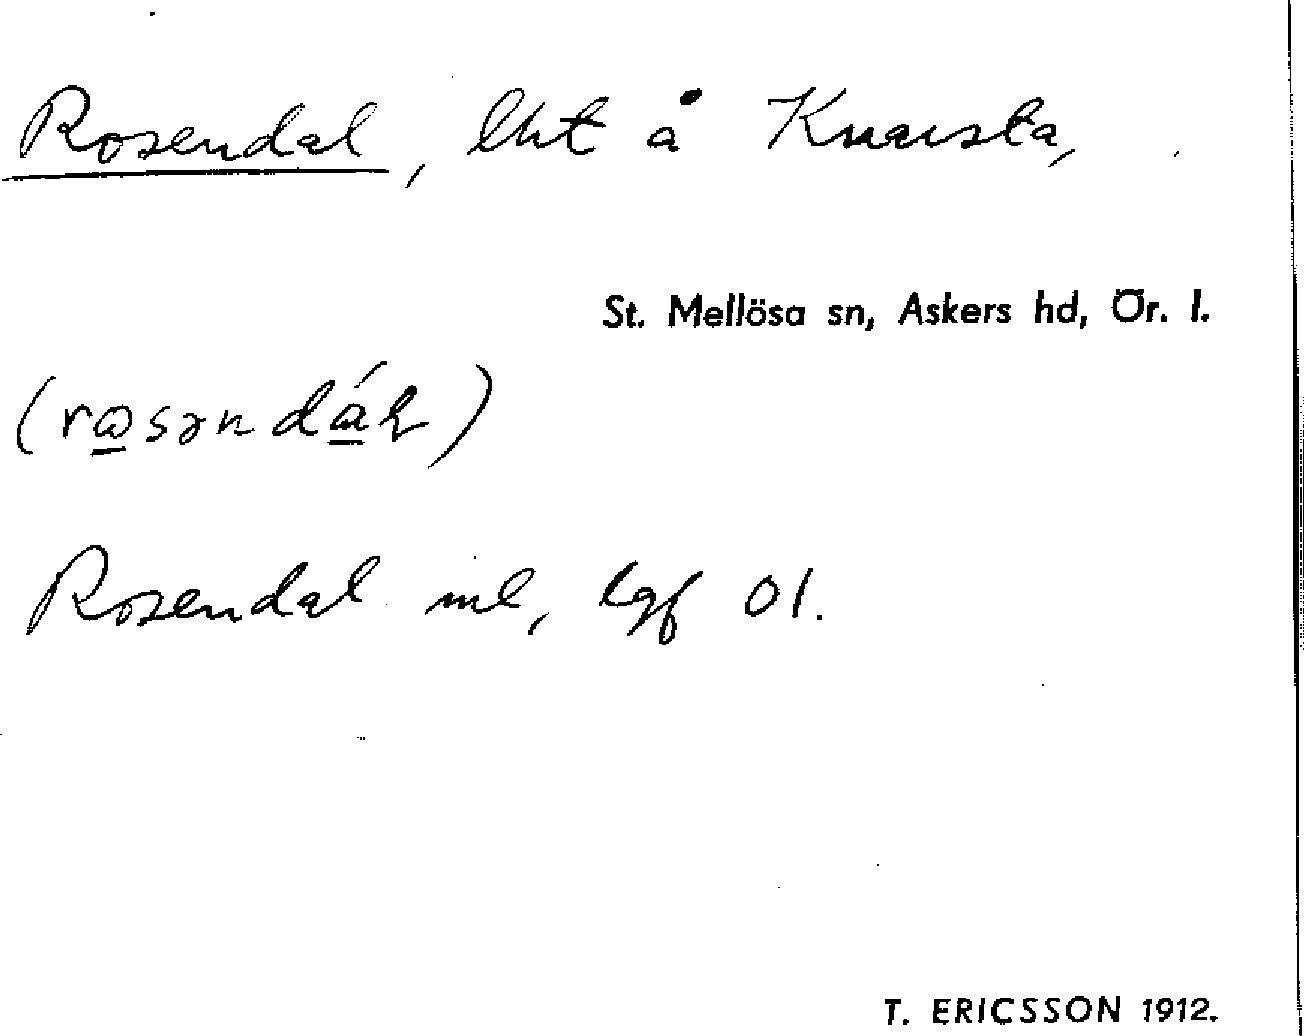 Rosendal, lht å Knavsta,
St. Mellösa sn, Askers hd, Ör. l.
(rɷsəndáł)
Rosendal ml, lgf 01.
T. ERICSSON 1912.